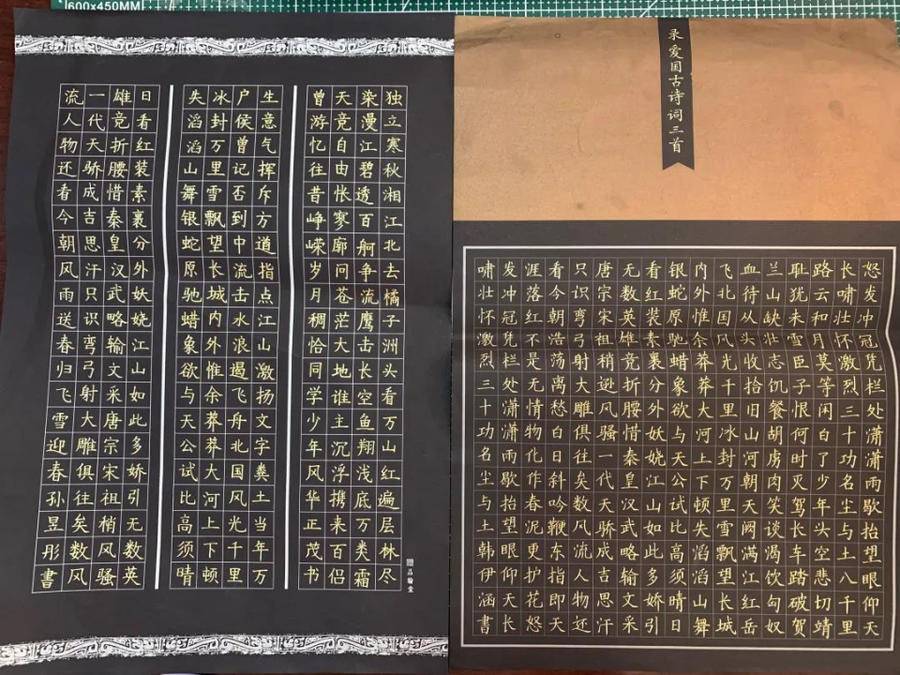 600x450MM
独立寒秋湘江北去橘子洲头看万山红遍层林尽
染漫江碧透百舸争流鹰击长空鱼翔浅底万类霜
天竞自由怅寥廓问苍茫大地谁主沉浮携来百侣
曾游忆往昔峥嵘岁月稠恰同学少年风华正茂书
生意气挥斥方遒指点江山激扬文字粪土当年万
户侯曾记否到中流击水浪遏飞舟北国风光千里
冰封万里雪飘望长城内外惟余莽莽大河上下顿
失滔滔山舞银蛇原驰蜡象欲与天公试比高须晴
日看红装素裹分外妖娆江山如此多娇引无数英
雄竞折腰惜秦皇汉武略输文采唐宗宋祖稍风骚
一代天骄成吉思汗只识弯弓射大雕俱往矣数风
流人物还看今朝风雨送春归飞雪迎春孙昱彤書
品翰堂
录爱国古诗词三首
怒发冲冠凭栏处潇潇雨歇抬望眼仰天
长啸壮怀激烈三十功名尘与土八千里
路云和月莫等闲白了少年头空悲切靖
耻犹未雪臣子恨何时灭驾长车踏破贺
兰山缺壮志饥餐胡虏肉笑谈渴饮匈奴
血待从头收拾旧山河朝天阙满江红岳
飞北国风光千里冰封万里雪飘望长城
内外惟余莽莽大河上下顿失滔滔山舞
银蛇原驰蜡象欲与天公试比高须晴日
看红装素裹分外妖娆江山如此多娇引
无数英雄竞折腰惜秦皇汉武略输文采
唐宗宋祖稍逊风骚一代天骄成吉思汗
只识弯弓射大雕俱往矣数风流人物还
看今朝浩荡离愁白日斜吟鞭东指即天
涯落红不是无情物化作春泥更护花怒
发冲冠凭栏处潇潇雨歇抬望眼仰天长
啸壮怀激烈三十功名尘与土韩伊涵書